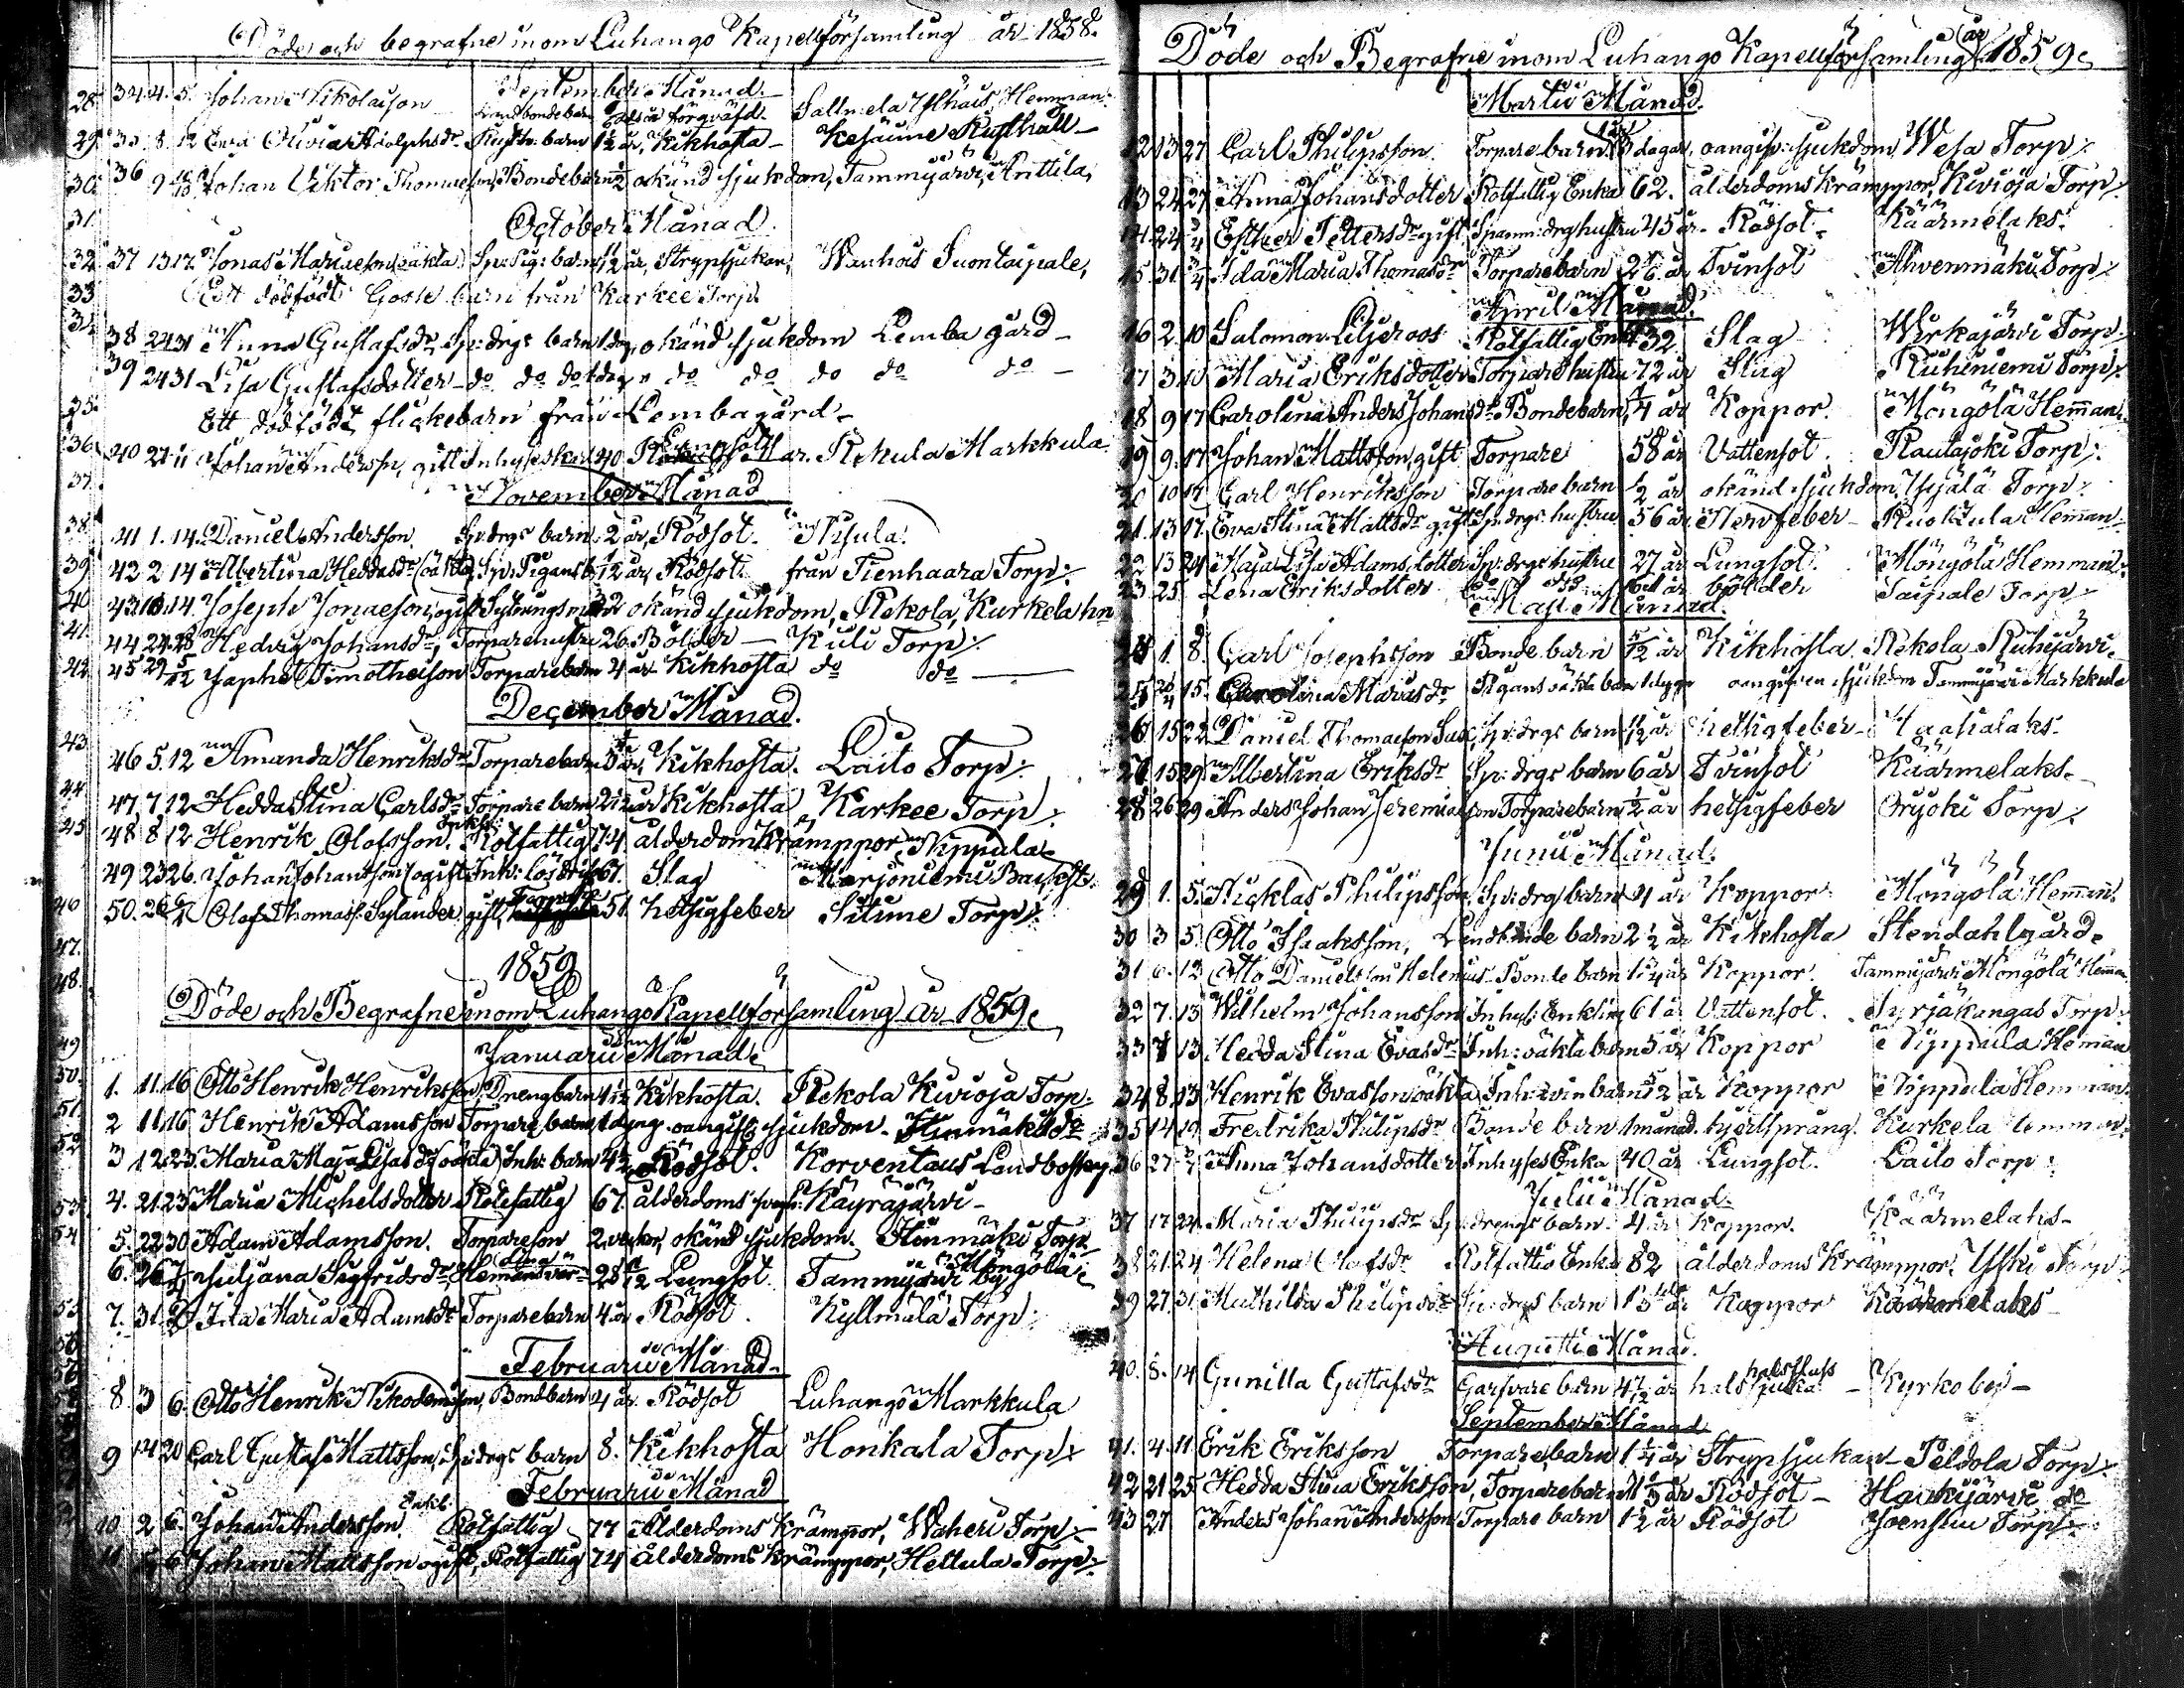 Döde och begrafne inom Luhango Kapellförsamling år 1858.
September Månad.
28. 34 4. 5. Johan Nikolaison Landbondebarn Sallmela Ylhäis Hemman
29. 35 8. 12 Eva Olivia Adolphsdr Rusth: barn 1½ år, Kikhosta Kejäine Rusthåll
30. 36 9 Johan Viktor Thomasson, Bondebarn ½ okänd sjukdom, Tammijärvi, Anttila,
31. October Månad.
32. 37 13.17. Jonas Mariaeson (oäkta) Sp: Pig: barn ½ år, Strypsjukan, Wanhois Suontaipale,
33 Ett dödfödt Gosse barn från Karkee Torp.
38 24 31 Anna Gustafsdr, Sp: drgs barn 1 dag, okänd sjukdom Lemba gård
39 24 31 Lisa Gustafsdotter do do do 1 dag do do do do do
35. Ett dödfödt flickebarn från Lembagård
36. 40 27 11 Johan Andersson, gift Inhyseskarl 40 Lungsot Rekula Markkula
37. November Månad
38. 41 1. 14. Daniel Andersson. Sp: drgs barn 2 år, Rödsot. Nisula.
39. 42 2 14 Albertina Heddasdr (oäkta) Sp: Pigans b. ½ år, Rödsot. från Tienhaara Torp.
40 43. 10. 14. Joseph Jonaeson, ogift Sytnings m 32 okänd sjukdom, Rekola, Kurkela hn
41. 44 24. 28 Hedvig Johansdr, Torparehustru 26. Bölder Kuli Torp.
42. 45 29 5/12 Japhet Timotheison Torparebarn 4 år Kikhosta do do
December Månad.
43. 46 5. 12 Amanda Henriksdr Torparebarn 5 år, Kikhosta. Laito Torp.
44 47. 7 12 Hedda Stina Carlsdr Torpare barn 2½ år Kikhosta Karkee Torp.
45 48 8 12 Henrik Olofsson. Enkl: Rotfattig 74. ålderdoms Krämppor, Nippula
49 23 26. Johan Johansson (ogift) Inh: lösdrif. 67. Slag Marjoniemi Backst.
46 50. 26 Olof Thomass. Sylander gift, Torpare 51. hetsigfeber Sitine Torp.
47. 1859
48. Döde och Begrafne inom Luhango Kapellförsamling År 1859.
49 Januarii Månad.
50. 1. 11. 16 Otto Henrik Henriksson, Drengbarn 4½ Kikhosta. Rekola Kivioja Torp.
51. 2 11. 16 Henrik Adamsson Torpare barn 1 dag. oangifven sjukdom. Hinmäki do
52 3 12. 23. Maria Maja Lisasdr (oäkta) Inh: barn 4½ Rödsot. Korventaus Landbotorp.
4. 21. 23 Maria Michelsdotter Rotefattig 67. ålderdoms svagh: Käyräjärvi
53. 5. 22 30 Adam Adamsson. Torpareson 2. veckor, okänd sjukdom. Hinmäki Torp.
54 6. 26 Juljana Sigfridsdr, Hemmansvär 28 Lungsot. Tammijärvi by Möngölä
55 7. 31. Ida Maria Adamsdr Torparebarn 4 år Rödsot. Kyllmälä Torp.
56 Februarii Månad
8. 3 6. Otto Henrik Nikodemison, Bondbarn 4 år. Rödsot Luhango Markkula
9 14 20 Carl Gustaf Mattsson, Sp: drgs barn 8. Kikhosta Honkala Torp.
Februarii Månad
10 2 6. Johan Andersson. Enkl. Rotfattig 77 Ålderdoms krämpor, Waheri Torp.
11 6 Johan Mattsson ogift, Rotfattig 74 ålderdoms Krämppor, Hettula Torp.
Döde och Begrafne inom Luhango Kapellförsamling år 1859.
Martii Månad.
12 13 27 Carl Philipsson. Torpare barn 3 dagar, oangifv: sjukdom Wesa Torp.
13 24 27 Anna Johansdotter Rotfattig Enka 62. ålderdoms krämppor, Kivioja Torp.
14 24 3/4 Esther Pettersdr gift Spanm: drg hustru 45 år. Rödsot. Käärmelaks.
15. 31. 3/4 Ida Maria Thomasdr Torparebarn 2 år Tvinsot Ahvenmäki Torp.
April Månad.
16 2. 10 Salomon Liljeroos Rotfattig Enkl 32 Slag Wirkajärvi Torp.
17 3. 10 Maria Eriksdotter Torpare hustru 72 år Slag Ruhiniemi Torp.
18 9 17 Carolina Anders Johansdr Bondebarn ¼ år Koppor. Möngölä Hemman.
19 9. 17 Johan Mattsson, gift Torpare 58 år Vattensot. Rautajoki Torp.
20 10 17 Carl Henriksson Torpare barn ½ år okänd sjukdom, Torp.
21. 13 17. Eva Stina Mattsdr gift Sp: drgs hustru 56 år Nervfeber Ruokula Hemman
22 13 24 Maja Lisa Adamsdotter Sp: drgs hustru 27 år Lungsot. Möngölä Hemman.
23 25. Lena Eriksdotter do do år bölder Taipale Torp.
Maji Månad.
24 1. 8. Carl Josephsson Bonde barn 5/12 år Kikhosta Rekola Ruhejärvi.
25 15. Carolina Mariasdr Pigans oäkta barn 1 dygn oangifven sjukdom Tammijärvi Markkula
26 15 22 Daniel Thomasson Sp: drgs barn ½ år hettigfeber Haahalaks
27 15 29 Albertina Eriksdr Sp: drgs barn 6 år Tvinsot Käärmelaks.
28 26. 29 Anders Johan Jeremiasson Torparebarn ½ år hetsigfeber Oryoki Torp.
Junii Månad.
29 1. 5. Nicklas Philipsson Sp: drg barn 4 år Koppor. Möngölä Hemman.
30 3 5. Otto Isaaksson, Landbonde barn 2½ år Kikhosta Stendahl gård
31 6. 13 Otto Danielsson Helenius Bonde barn 1¼ år Koppor. Tammijärvi Möngölä Hemman
32 7. 13 Wilhelm Johansson Inhys: Enkling 61 år Vattensot. Syrjäkangas Torp.
33 7 13 Hedda Stina Evasdr Inh: oäkta barn 5 år Koppor Nippula Hemman
34 8. 13 Henrik Evasson (oäkta) Inh: barn år Koppor Nippula Hemman.
35 14 19 Fredrika Philipsdr Bonde barn 1 månad. hjertsprång. Kurkela Hemman
36 27 Anna Johansdotter Inhyses Enka 40 år Lungsot. Laito Torp.
Julii Månad.
37 17 24. Maria Philipsdr Sp: drengs barn. 4 år Koppor. Käärmelaks
38 21. 24 Helena Olofsdr Rotfattig Enka 82 ålderdoms Krämppor. Torp
39 27. 31 Mathilda Philipsdr Sp: drgs barn år Koppor Käärmelaks
Augusti Månad.
40. 8. 14 Gunilla Gustafsdr Garfvare barn 4 år hals sjuka Kyrkoby
September Månad
41. 4. 11 Erik Eriksson Torpare barn 1¼ år Strypsjukan Peldola Torp.
42 21 25 Hedda Stina Eriksson, Torparebarn år Rödsot Haukijärvi do
43 27 Anders Johan Andersson Torpare barn 1½ år Rödsot Joensuu Torp.